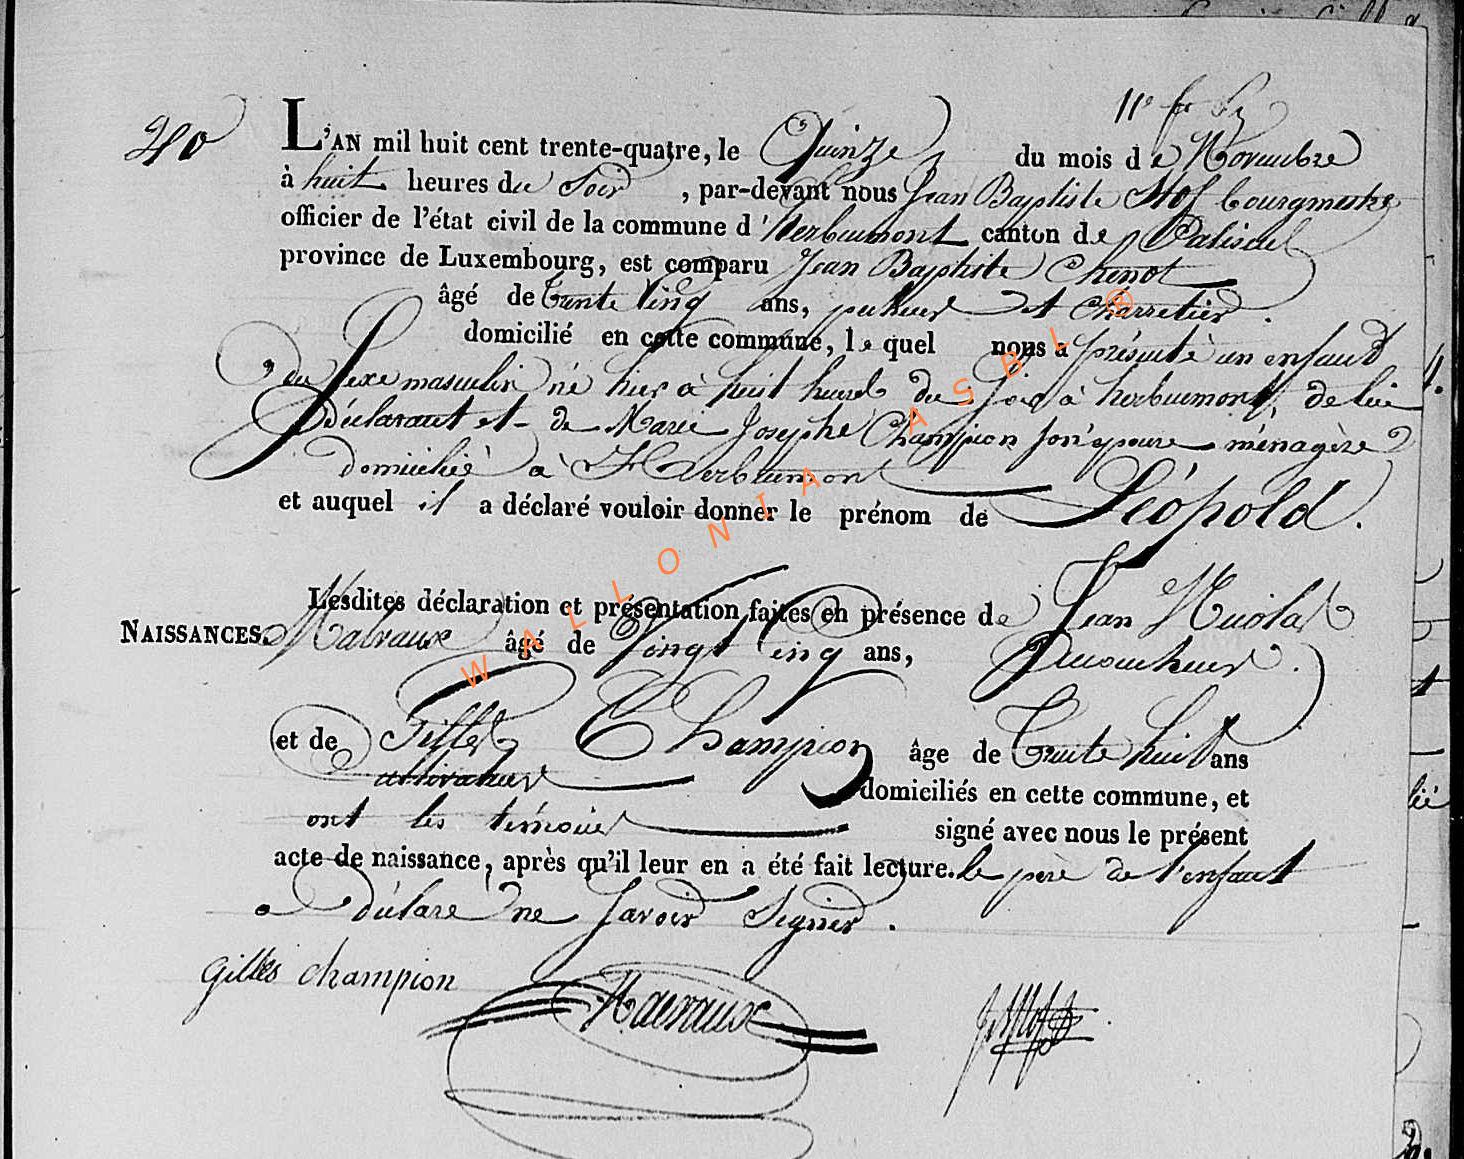 L'AN mil huit cent trente-quatre, le Quinze du mois de Novembre
à huit heures du Soir, par-devant nous Jean Baptiste bourgmestre
officier de l'état civil de la commune d'herbeumont canton de Paliseul
province de Luxembourg, est comparu Jean Baptiste Chenot
âgé de trente cinq ans, pecheur et Charretier.
domicilié en cette commune, lequel nous a présenté un enfant
du sexe masculin né hier à huit heures du soir à herbeumont de lui
Déclarant et de Marie Josephe Champion son epouse ménagère
domiciliée à Herbeumont
et auquel il a déclaré vouloir donner le prénom de Léopold.
Lesdites déclaration et présentation faites en présence de Jean Nicolas
NAISSANCES. Malvaux âgé de Vingt Cinq ans,
et de Gilles Champion âge de Trente huit ans
cultivateur domiciliés en cette commune, et
ont les témoins signé avec nous le présent
acte de naissance, après qu'il leur en a été fait lecture. le père de l'enfant
a déclaré ne savoir Signer.
gilles champion Malvaux
WALLONIA ASBL ®